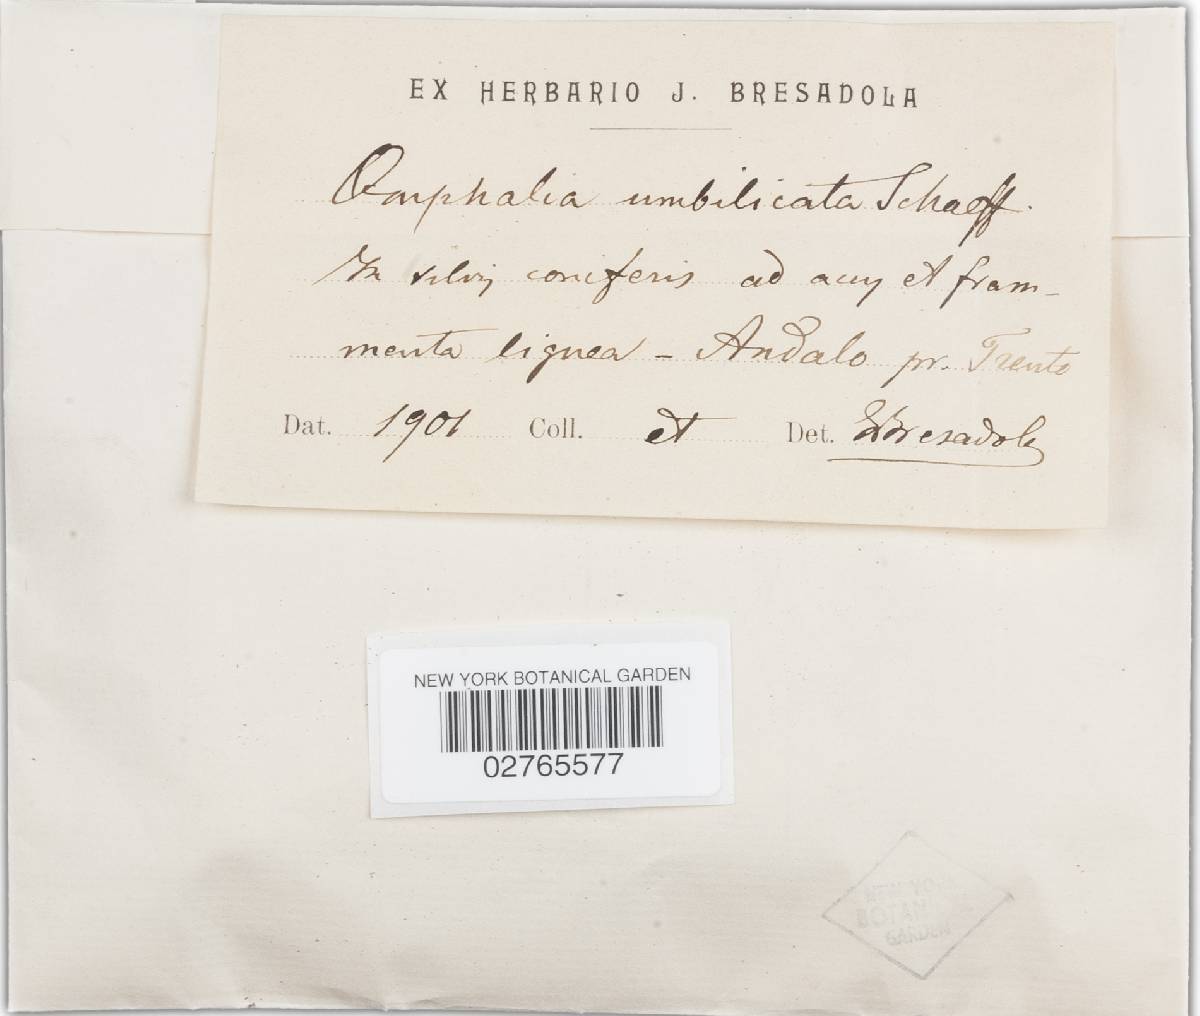 EX HERBARIO J. BRESADOLA
Omphalia umbilicata Schaeff.
In silvis coniferis ad acus et fram-
menta lignea - Andalo pr. Trento
Dat. 1901 Coll. et Det. Bresadola
NEW YORK BOTANICAL GARDEN
02765577
NEW YORK
BOTANICAL
GARDEN